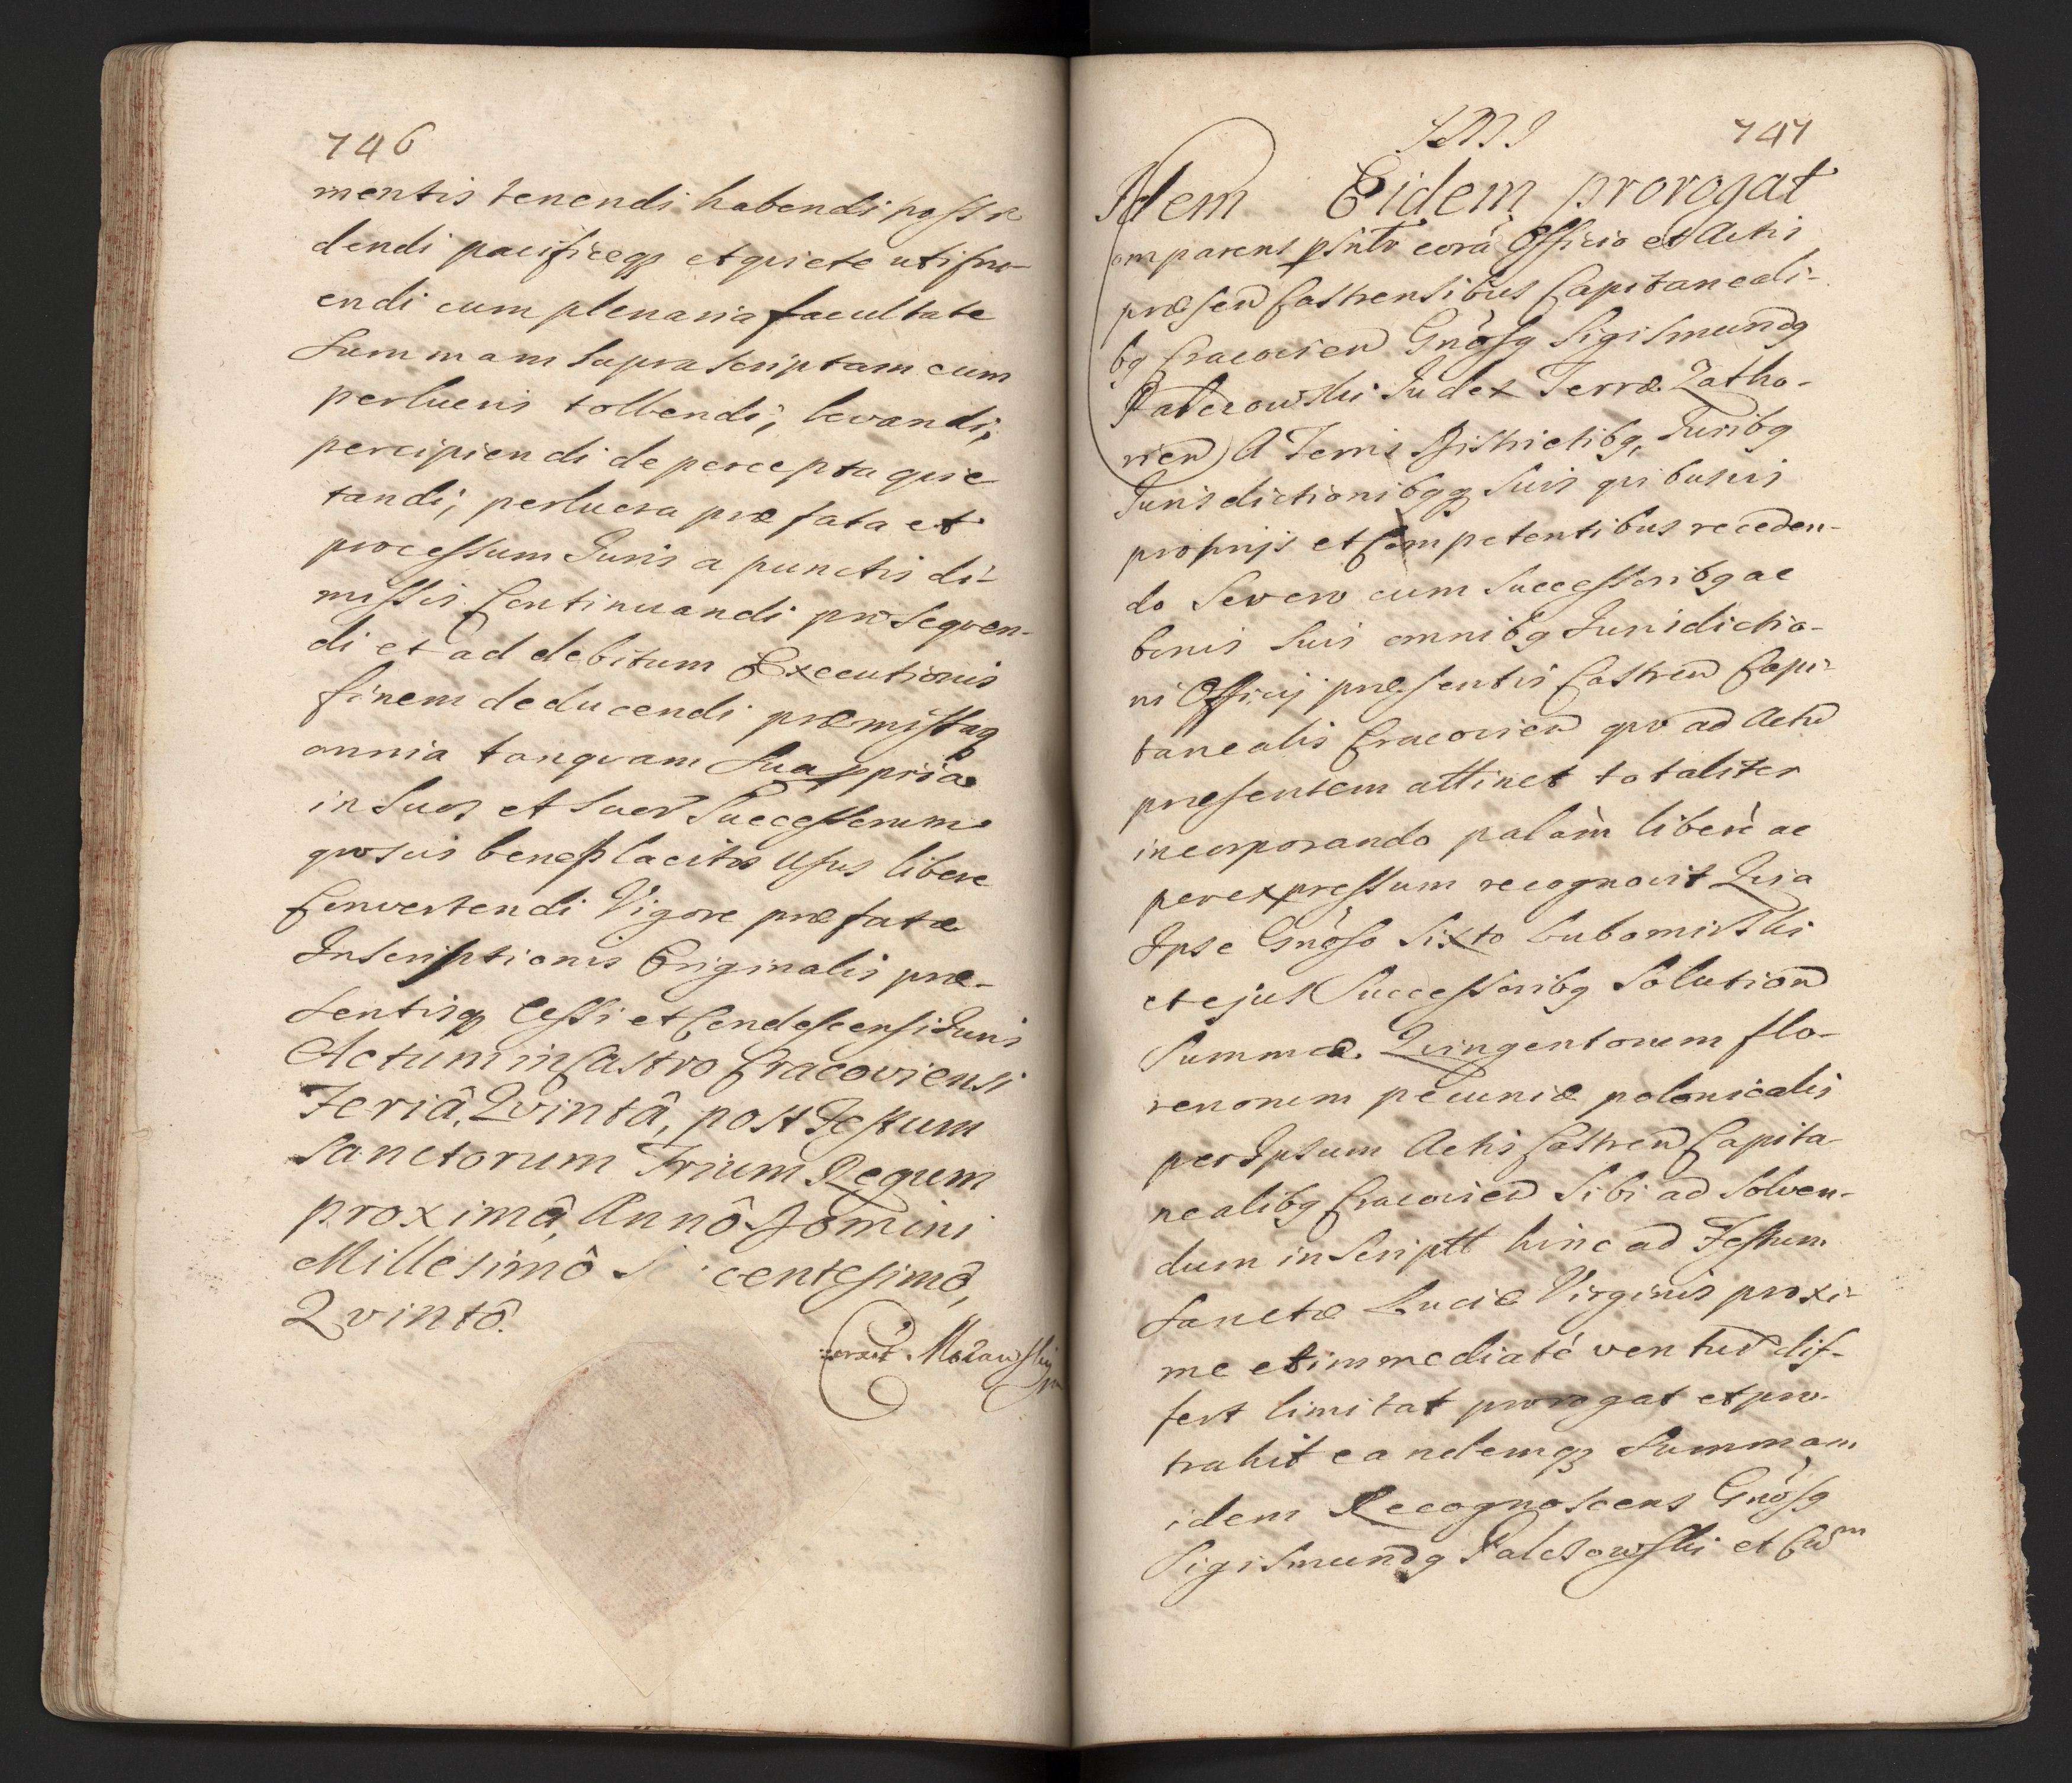 746
mentis tenendi habendi possi
dendi pacificeqz et quiete utifru-
endi cum plenaria facultate
Summam suprascriptam cum
perlucris tollendi, levandi,
percipiendi de percepta quie
tandi, perlucra præfata et
processum Juris a punctis di-
missis Continuandi prosequen-
di et ad debitum Executionis
finem deducendi præmissaq
omnia tanquam sua ppria
in suos et suor Successorum
quosvis beneplacitos Usus libere
Convertendi Vigore præfatæ
Inscriptionis Originalis præ-
sentisqz Cessi et Condescensi Juris
Actum in Castro Cracoviensi
Feriâ Qvintâ, post Festum
Sanctorum Trium Regum
proximâ, Annô Domini
Millesimô centesimô,
Qvintô.
747
Idem Eidem prorogat
omparens psntr corà Officio et Actis
præsen Castrensibus Capitaneali-
bq Cracovien Gnosq Sigismundq
Palczowski Judex Terræ Zatho-
rien A Terris Districtibq, Juribq
Jurisdictionibqqz suis quibusvis
proprijs et Competentibus receden-
do Se vero cum Successoribq ac
bonis suis omnibq Jurisdictio-
ni Officij præsentis Castren Capi-
tanealis Cracovien quo ad Actu
præsentem attinet totaliter
incorporando palàm liberè ac
per expressum recognovit Quia
Ipse Gnoso Sixto Lubomirski
et ejus Successoribq Solution
Summæ Quingentorum flo-
renorum pecuniæ polonicalis
per Ipsum Actis Castren Capita-
nealibq Cracovien Sibi ad Solven-
dum inscriptt hinc ad Festum
Sanctæ Luciæ Virginis proxi-
me et immediatè ventur dif-
fert limitat prorogat et pro-
trahit eandemqz Summam
idem Recognoscens Gnosq
Sigismundq Palczowski et